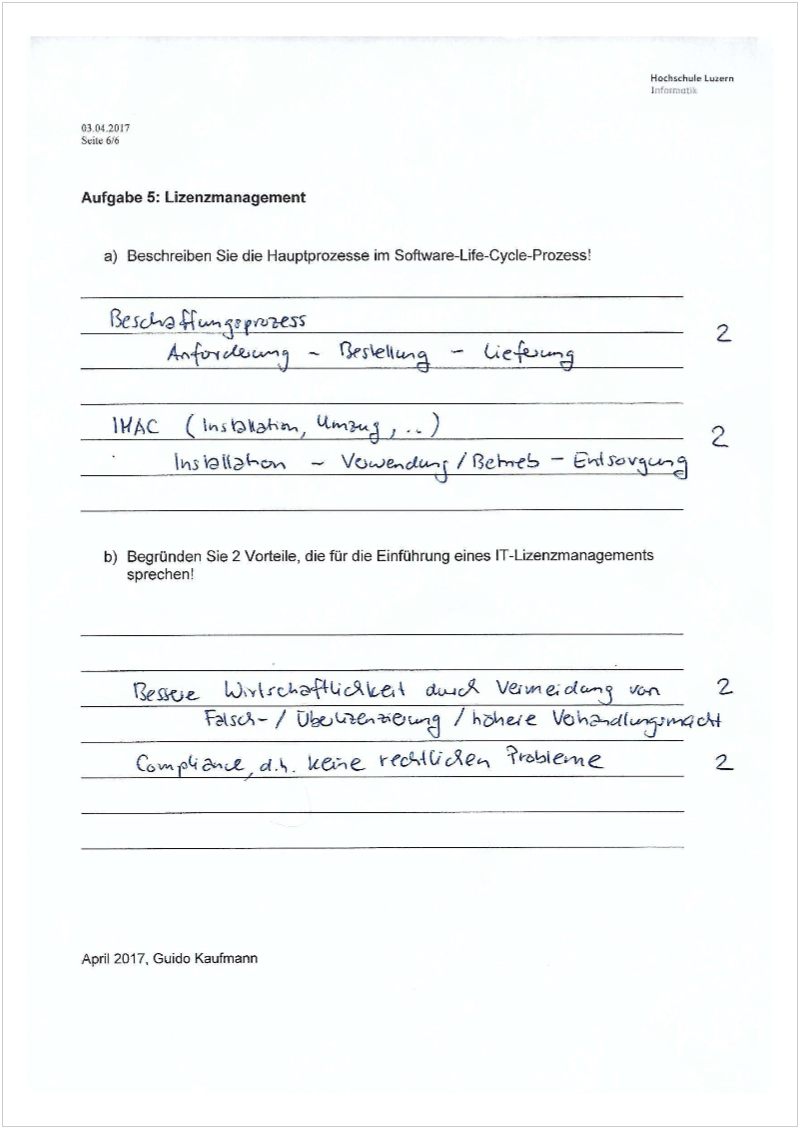 Hochschule Luzern
Informatik
03.04.2017
Seite 6/6
Aufgabe 5: Lizenzmanagement
a) Beschreiben Sie die Hauptprozesse im Software-Life-Cycle-Prozess!
Beschaffungsprozess
Anforderung – Bestellung – Lieferung 2
IMAC (Installation, Umzug, ..) 2
Installation – Verwendung / Betrieb – Entsorgung
b) Begründen Sie 2 Vorteile, die für die Einführung eines IT-Lizenzmanagements
sprechen!
Bessere Wirtschaftlichkeit durch Vermeidung von 2
Falsch- / Überlizenzierung / höhere Verhandlungsmacht
Compliance, d.h. keine rechtlichen Probleme 2
April 2017, Guido Kaufmann